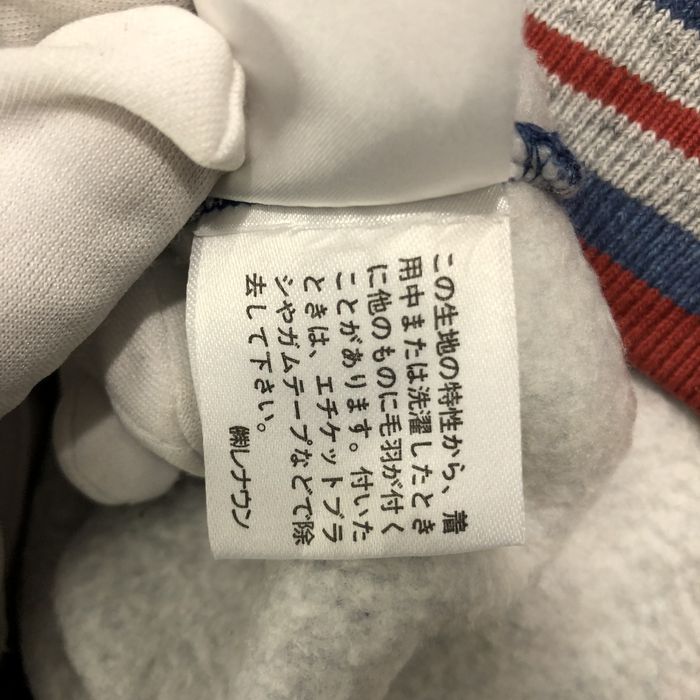 この生地の特性から、着
用中または洗濯したとき
に他のものに毛羽が付く
ことがあります。付いた
ときは、エチケットブラ
シやガムテープなどで除
去して下さい。
㈱レナウン